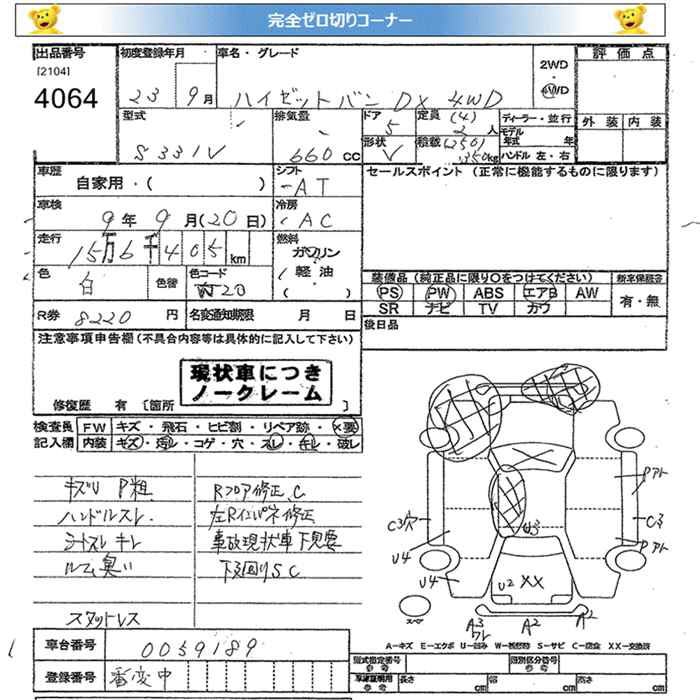 完全ゼロ切りコーナー
出品番号 初度登録年月 車名・グレード 2WD 評価点
[2104] 4WD
4064 23 9月 ハイゼットバン DX 4WD
型式 排気量 ドア 定員 (4) ディーラー・並行 外装 内装
5 2人 モデル年式 年
S331V 660 cc 形状 積載 (250) ハンドル 左・右
V 350kg
車歴 シフト セールスポイント (正常に機能するものに限ります)
自家用・( ) AT
車検 冷房
9年9月(20日) AC
走行 燃料
15万6千405km ガソリン
色 色替 色コード 軽油 装備品 (純正品に限り○をつけてください) 新車保証書
白 W20 ( ) PS PW ABS エアB AW 有・無
R券 8220円 名変通知期限 月 日 SR ナビ TV カワ
注意事項申告欄 (不具合内容等は具体的に記入して下さい) 後日品
現状車につき
ノークレーム
修復歴 有 [箇所 ]
検査員 FW キズ・飛石・ヒビ割・リペア跡・×要
記入欄 内装 キズ・汚レ・コゲ・穴・スレ・キレ・破レ
キズU P粗 Rフロア修正、C
ハンドルスレ 左Rインパネ修正
シートスレ キレ 事故現状車下見要
ルーム臭い 下回りSC
スタッドレス
Pアト
C3穴 C3
U3
U4 Pアト
U4 U2 XX
スペア A3 A2 A2
ワレ
A-キズ E-エクボ U-凹み W-板修跡 S-サビ C-腐食 XX-交換済
車台番号 0059189
型式指定番号 参考 類別区分番号 参考
登録番号 番変中 車庫証明用 参考 長さ cm 幅 cm 高さ cm